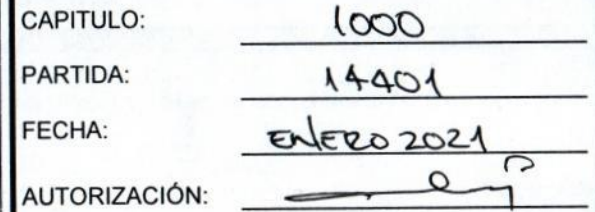 CAPITULO: 1000
PARTIDA: 14401
FECHA: ENERO 2021
AUTORIZACIÓN: